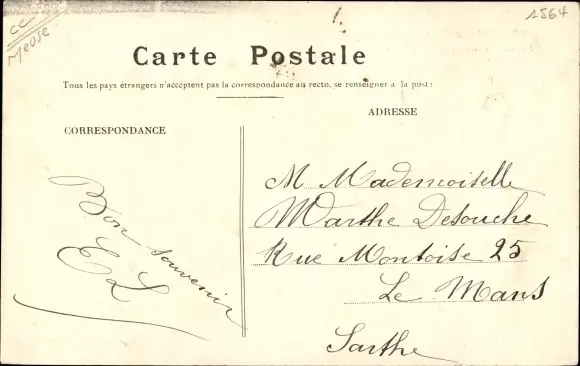 CC
Meuse
1564
Carte Postale
Tous les pays étrangers n'acceptent pas la correspondance au recto, se renseigner a la poste
ADRESSE
CORRESPONDANCE
Bon souvenir
EL
M Mademoiselle
Marthe Desouche
Rue Montoise 25
Le Mans
Sarthe